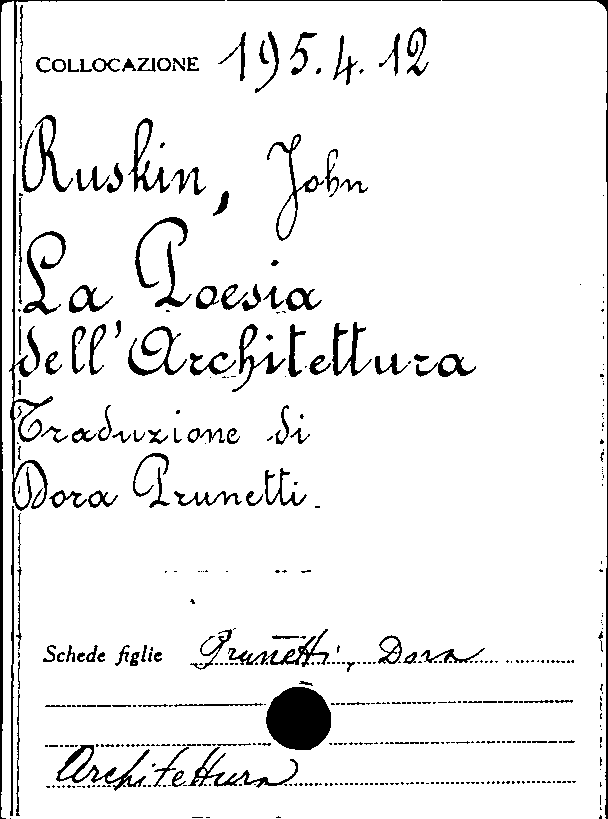 COLLOCAZIONE 195.4.12
Ruskin, John
La Poesia
dell'Architettura
Traduzione di
Dora Prunetti.
Schede figlie Prunetti, Dora
Architettura